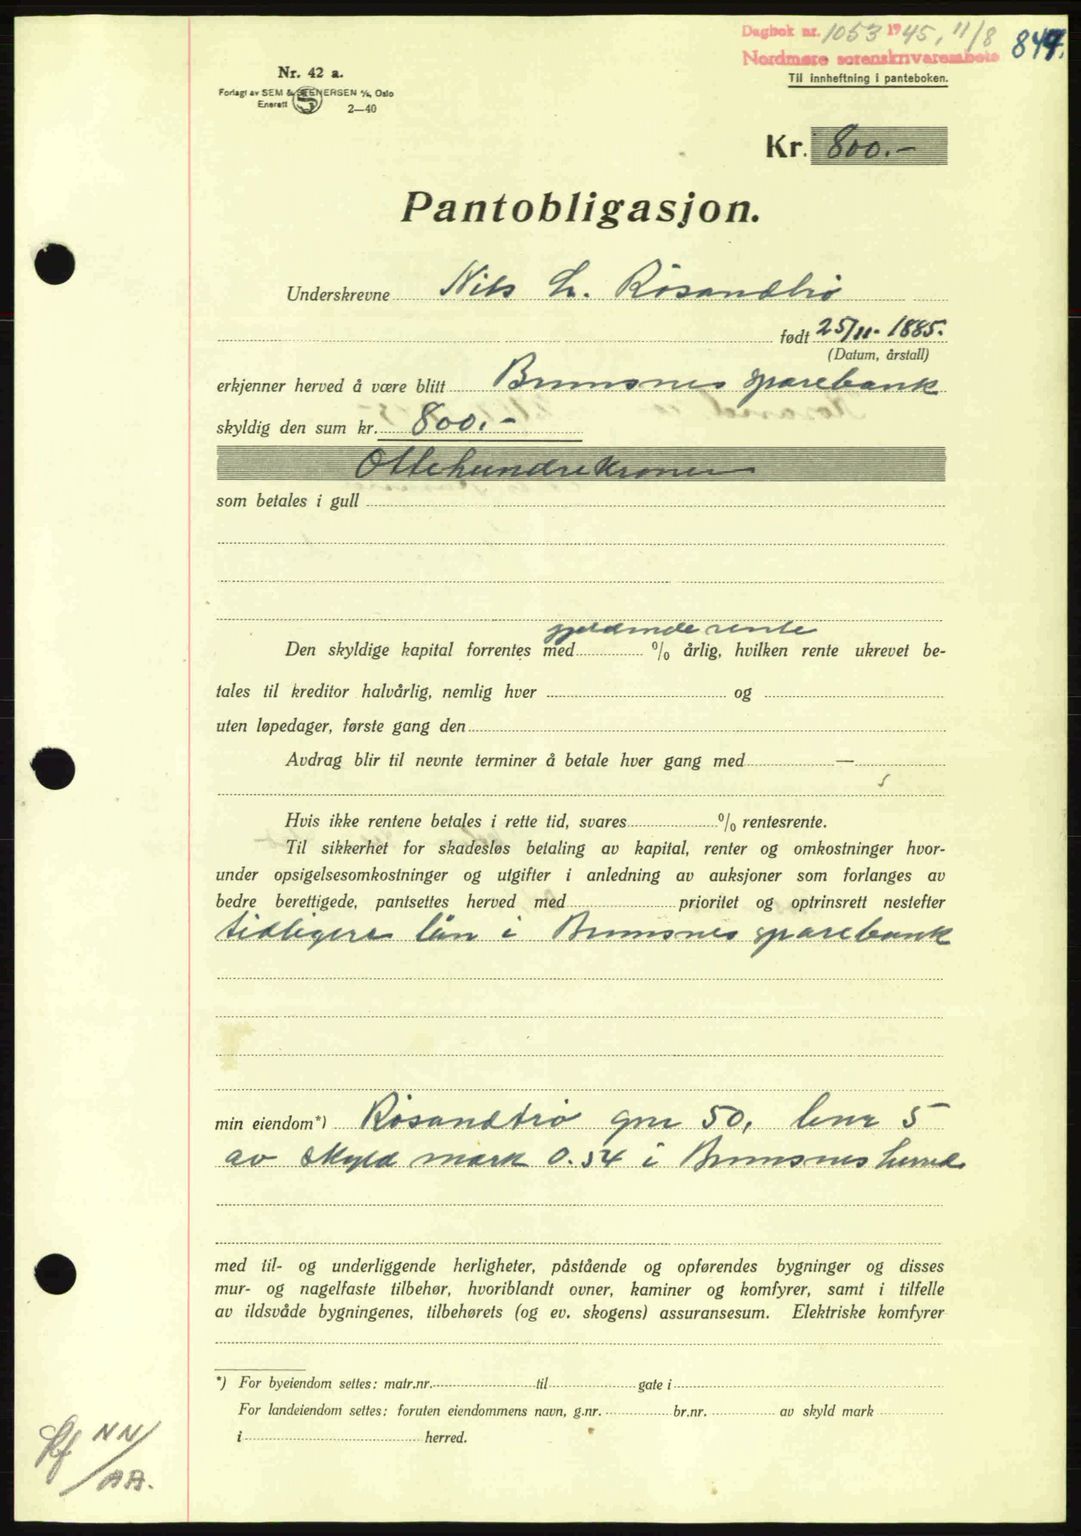 Dagbok nr. 1053 1945, 11/8 847.
Nordmøre sorenskriverembete
Til innheftning i panteboken.
Nr. 42 a.
Forlagt av SEM & STENERSEN A/S, Oslo
Enerett S 2—40
Kr. 800.-
Pantobligasjon.
Underskrevne Nils L. Røsandtrø
født 25/11- 1885.
(Datum, årstall)
erkjenner herved å være blitt Bremsnes sparebank
skyldig den sum kr. 800.-
Ottehundrekroner
som betales i gull
gjeldende rente
Den skyldige kapital forrentes med % årlig, hvilken rente ukrevet be-
tales til kreditor halvårlig, nemlig hver og
uten løpedager, første gang den
Avdrag blir til nevnte terminer å betale hver gang med —
Hvis ikke rentene betales i rette tid, svares % rentesrente.
Til sikkerhet for skadesløs betaling av kapital, renter og omkostninger hvor-
under opsigelsesomkostninger og utgifter i anledning av auksjoner som forlanges av
bedre berettigede, pantsettes herved med prioritet og optrinsrett nestefter
tidligere lån i Bremsnes sparebank
min eiendom*) Røsandtrø gnr 50, bnr 5
av skyld mark 0.54 i Bremsnes herred
med til- og underliggende herligheter, påstående og opførendes bygninger og disses
mur- og nagelfaste tilbehør, hvoriblandt ovner, kaminer og komfyrer, samt i tilfelle
av ildsvåde bygningenes, tilbehørets (og ev. skogens) assuransesum. Elektriske komfyrer
*) For byeiendom settes: matr.nr. til gate i
For landeiendom settes: foruten eiendommens navn, g.nr. br.nr. av skyld mark
i herred.
NN/
AA.